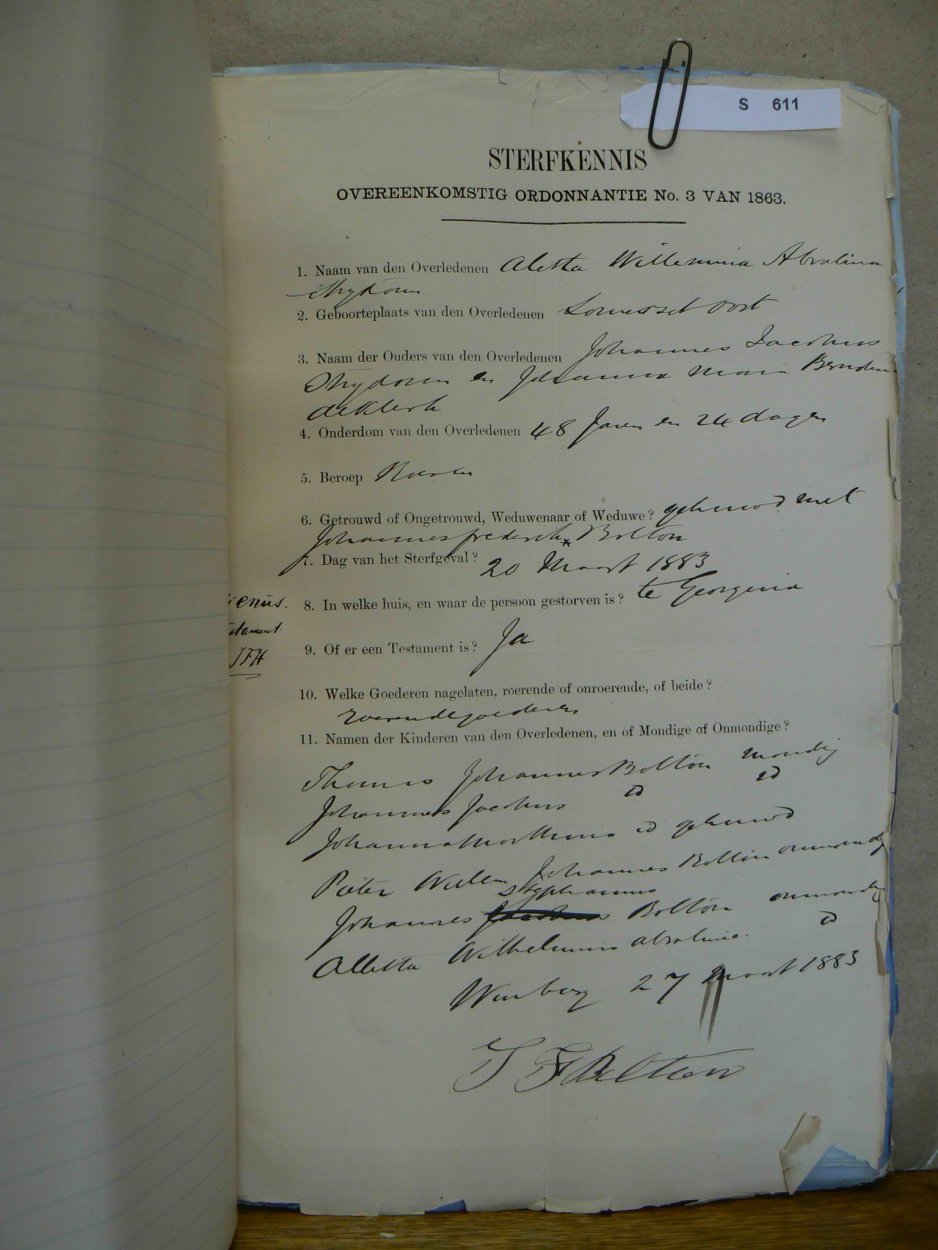 S 611
STERFKENNIS
OVEREENKOMSTIG ORDONNANTIE No. 3 VAN 1863.
1. Naam van den Overledenen Aletta Willemina Abralina
Strydom
2. Geboorteplaats van den Overledenen Somerset Oost
3. Naam der Ouders van den Overledenen Johannes Jacobus
Strydom en Johanna Maria
de Klerk
4. Onderdom van den Overledenen 48 Jaren en 24 dagen
5. Beroep
6. Getrouwd of Ongetrouwd, Weduwenaar of Weduwe? gehuwd met
Johannes frederik Bolton
7. Dag van het Sterfgeval? 20 Maart 1883
8. In welke huis, en waar de persoon gestorven is? te Georgina
JFH
9. Of er een Testament is? Ja
10. Welke Goederen nagelaten, roerende of onroerende, of beide?
roerende goederen
11. Namen der Kinderen van den Overledenen, en of Mondige of Onmondige?
Thomas Johannes Bolton mondig
Johannes Jacobus id id
Johanna id gehuwd
Pieter Willem Johannes Bolton onmondig
Stephannus
Johannes Bolton onmondig
Alletta Wilhelmina abralina id
Winburg 27 Maart 1883
J F Bolton